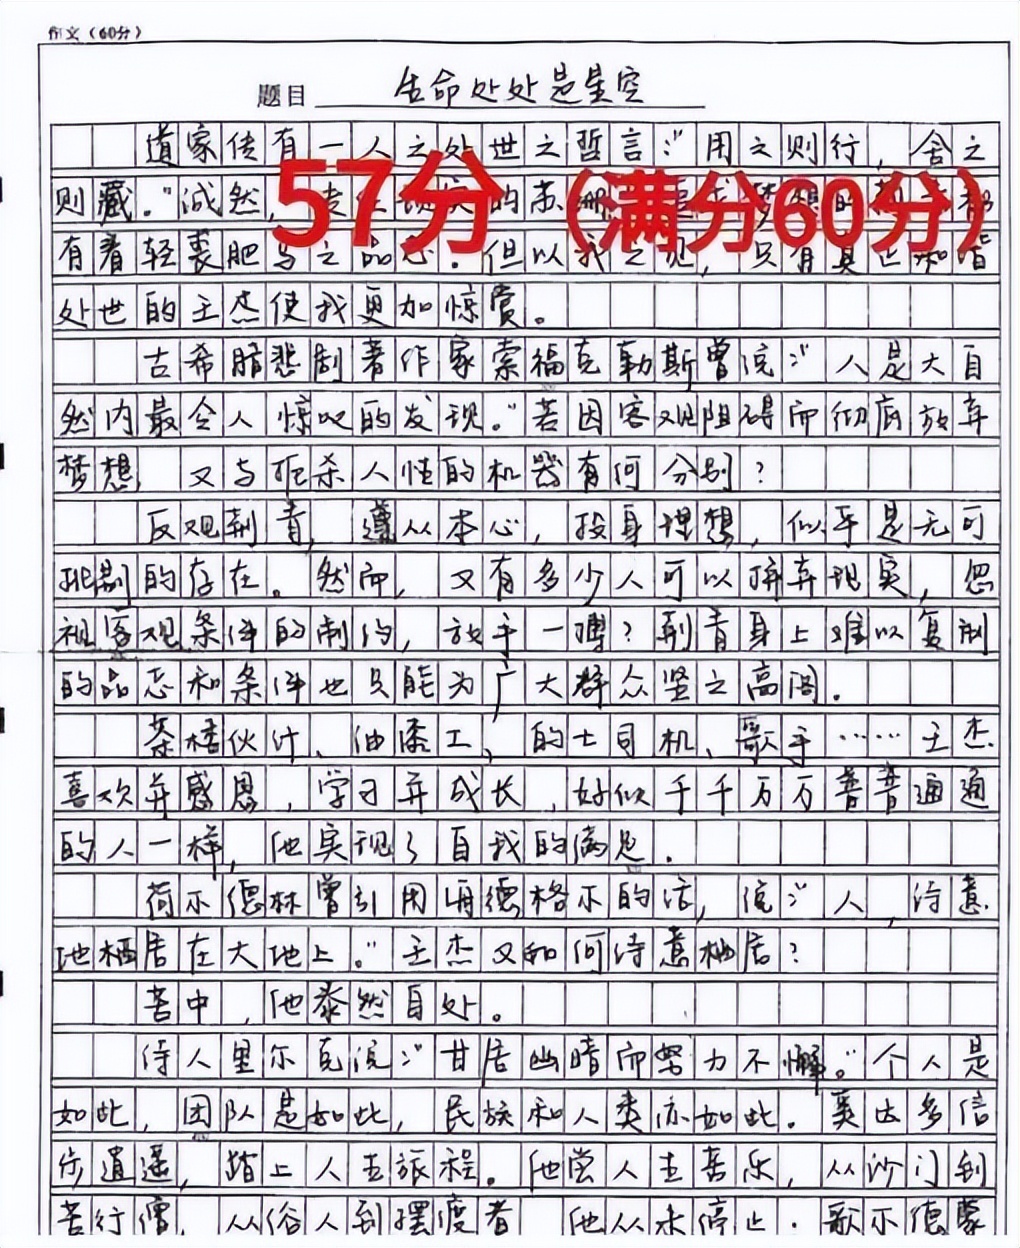 作文（60分）
题目 生命处处是星空
道家传有一人之处世之哲言："用之则行，舍之
则藏。"诚然，的
有着轻裘肥马之品志.但以我之见，只有真正和谐
处世的王杰使我更加惊赏。
57分（满分60分）
古希腊悲剧著作家索福克勒斯曾说："人是大自
然内最令人惊叹的发现。"若因客观阻碍而彻底放弃
梦想 又与扼杀人性的机器有何分别？
反观荆青，遵从本心，投身理想，似乎是无可
指摘的存在。然而，又有多少人可以摒弃现实，忽
视客观条件的制约，放手一搏？荆青身上难以复制
的品志和条件也只能为广大群众坚之高阁.
茶楼伙计、油漆工、的士司机、歌手……王杰
喜欢并感恩，学习并成长，好似千千万万普普通通
的人一样，他实现了自我的满足.
荷尔德林曾引用海德格尔的话，说："人，诗意
地栖居在大地上。"王杰又如何诗意栖居？
苦中，他泰然自处。
诗人里尔克说："甘居幽暗而努力不懈。"个人是
如此，团队是如此，民族和人类亦如此.奚达多信
步逍遥，踏上人生旅程。他尝人生喜乐，从沙门到
苦行僧，从俗人到摆渡者 他从未停止.歌尔德蒙